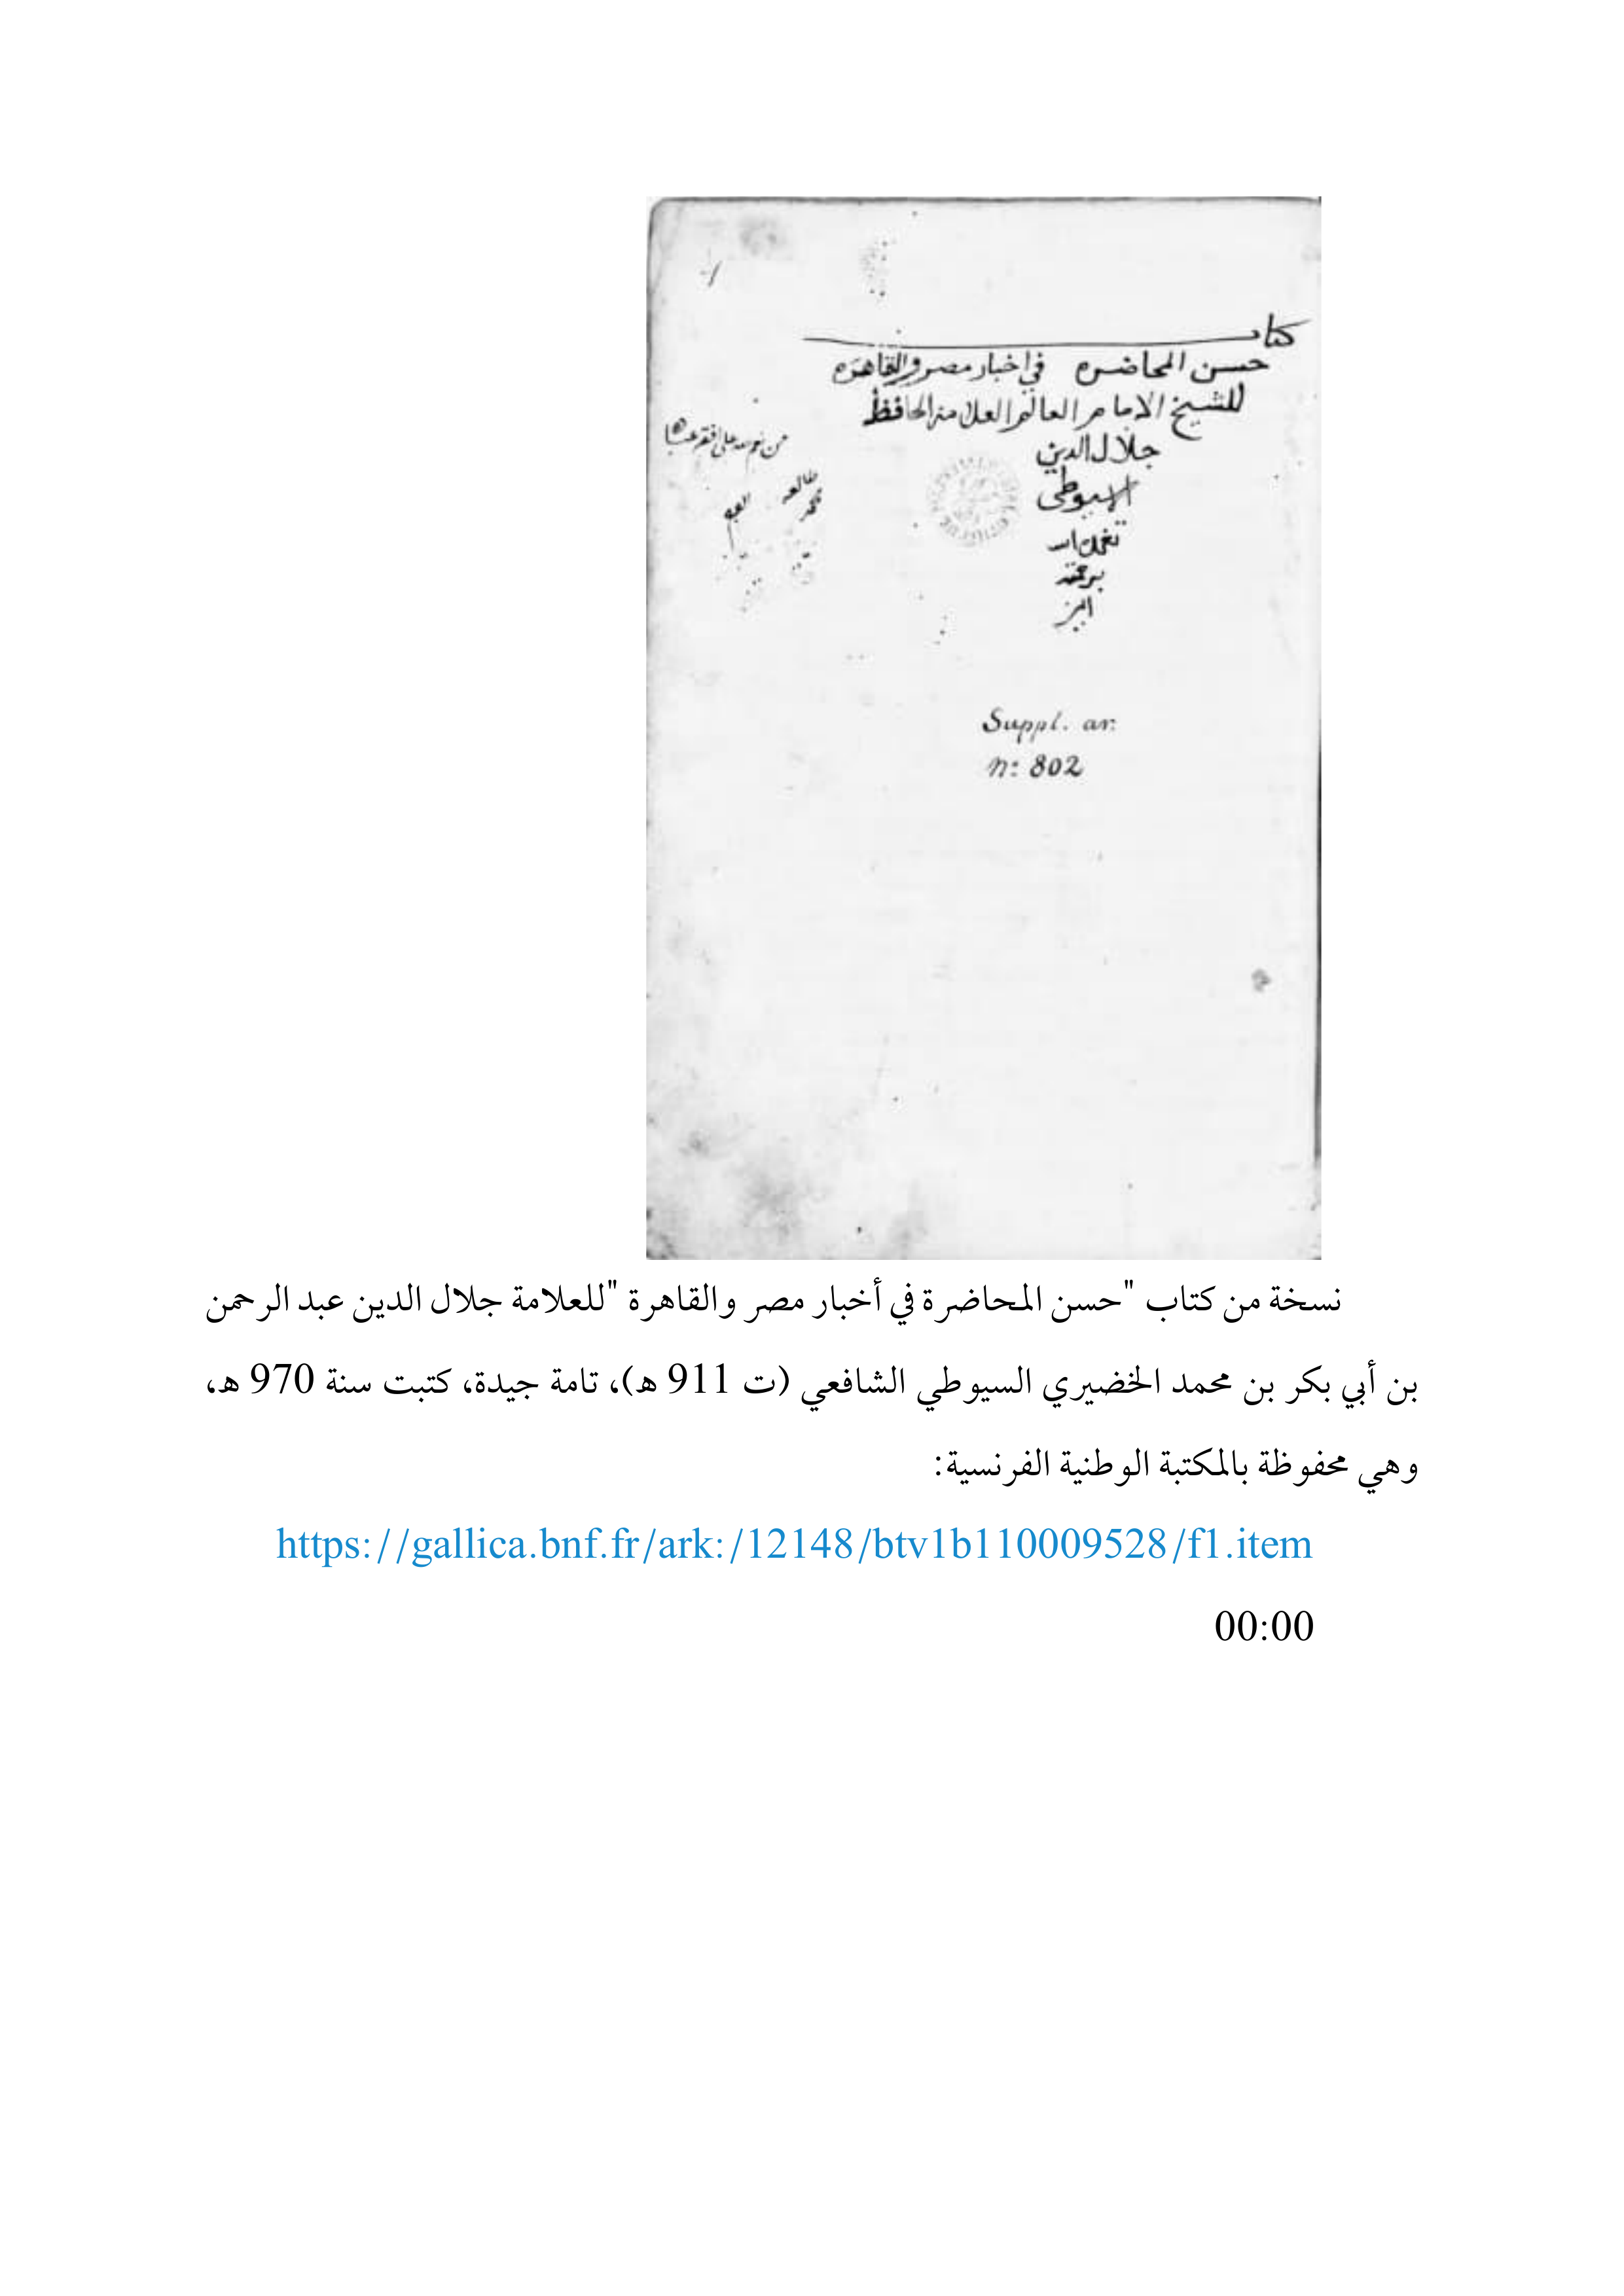 كتاب
حسن المحاضره في اخبار مصر والقاهره
للشيخ الامام العالم العلامه الحافظ
جلال الدين
الاسيوطى
تغمده الله
برحمته
امين
من
طالعه
محمد
Suppl. ar.
n: 802
نسخة من كتاب "حسن المحاضرة في أخبار مصر والقاهرة "للعلامة جلال الدين عبد الرحمن
بن أبي بكر بن محمد الخضيري السيوطي الشافعي (ت 911 ه)، تامة جيدة، كتبت سنة 970 ه،
وهي محفوظة بالمكتبة الوطنية الفرنسية:
https://gallica.bnf.fr/ark:/12148/btv1b110009528/f1.item
00:00